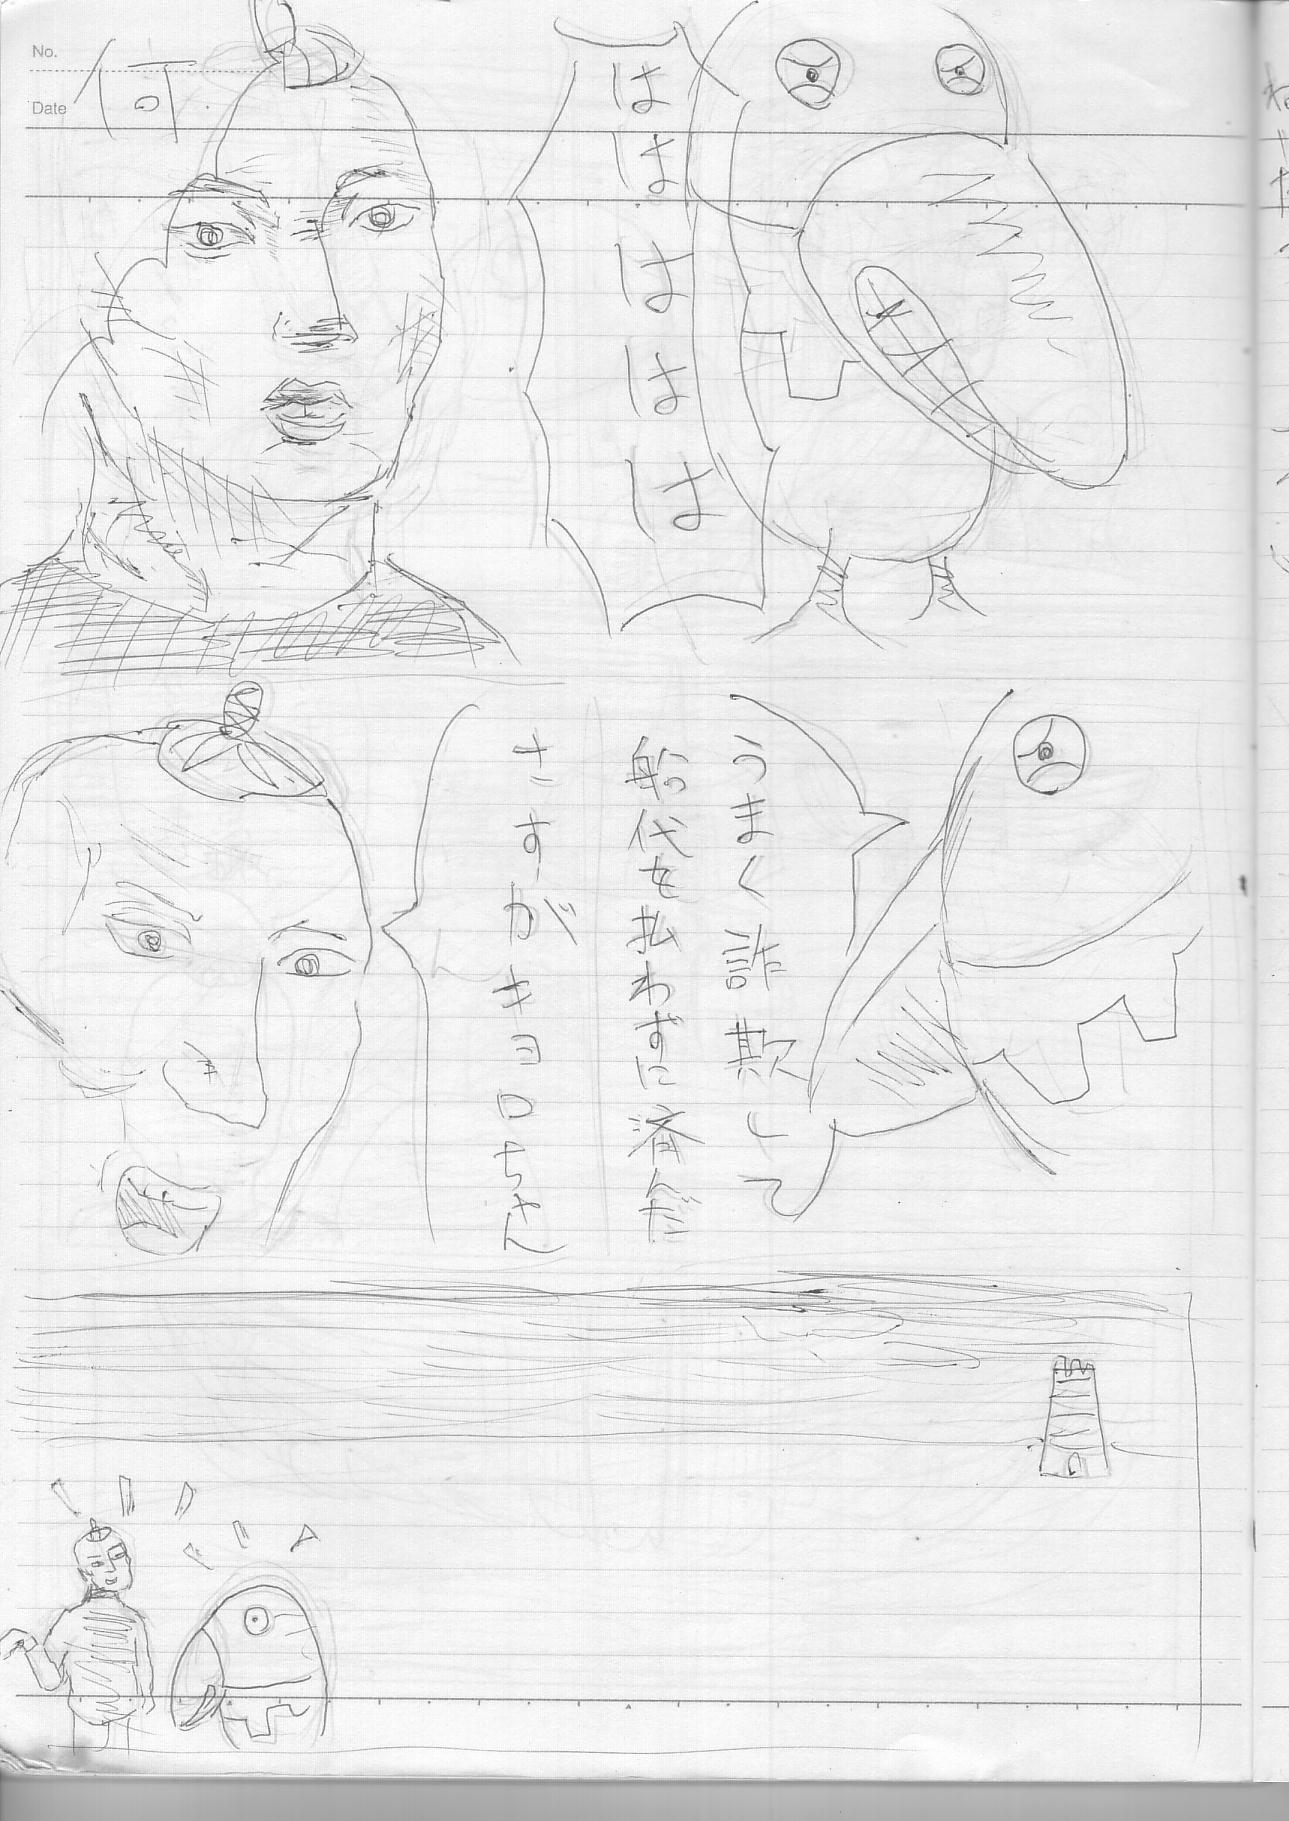 No.
Date
何
ははははは
うまく詐欺して
船代を払わずに済んだ
さすがキョロちゃん